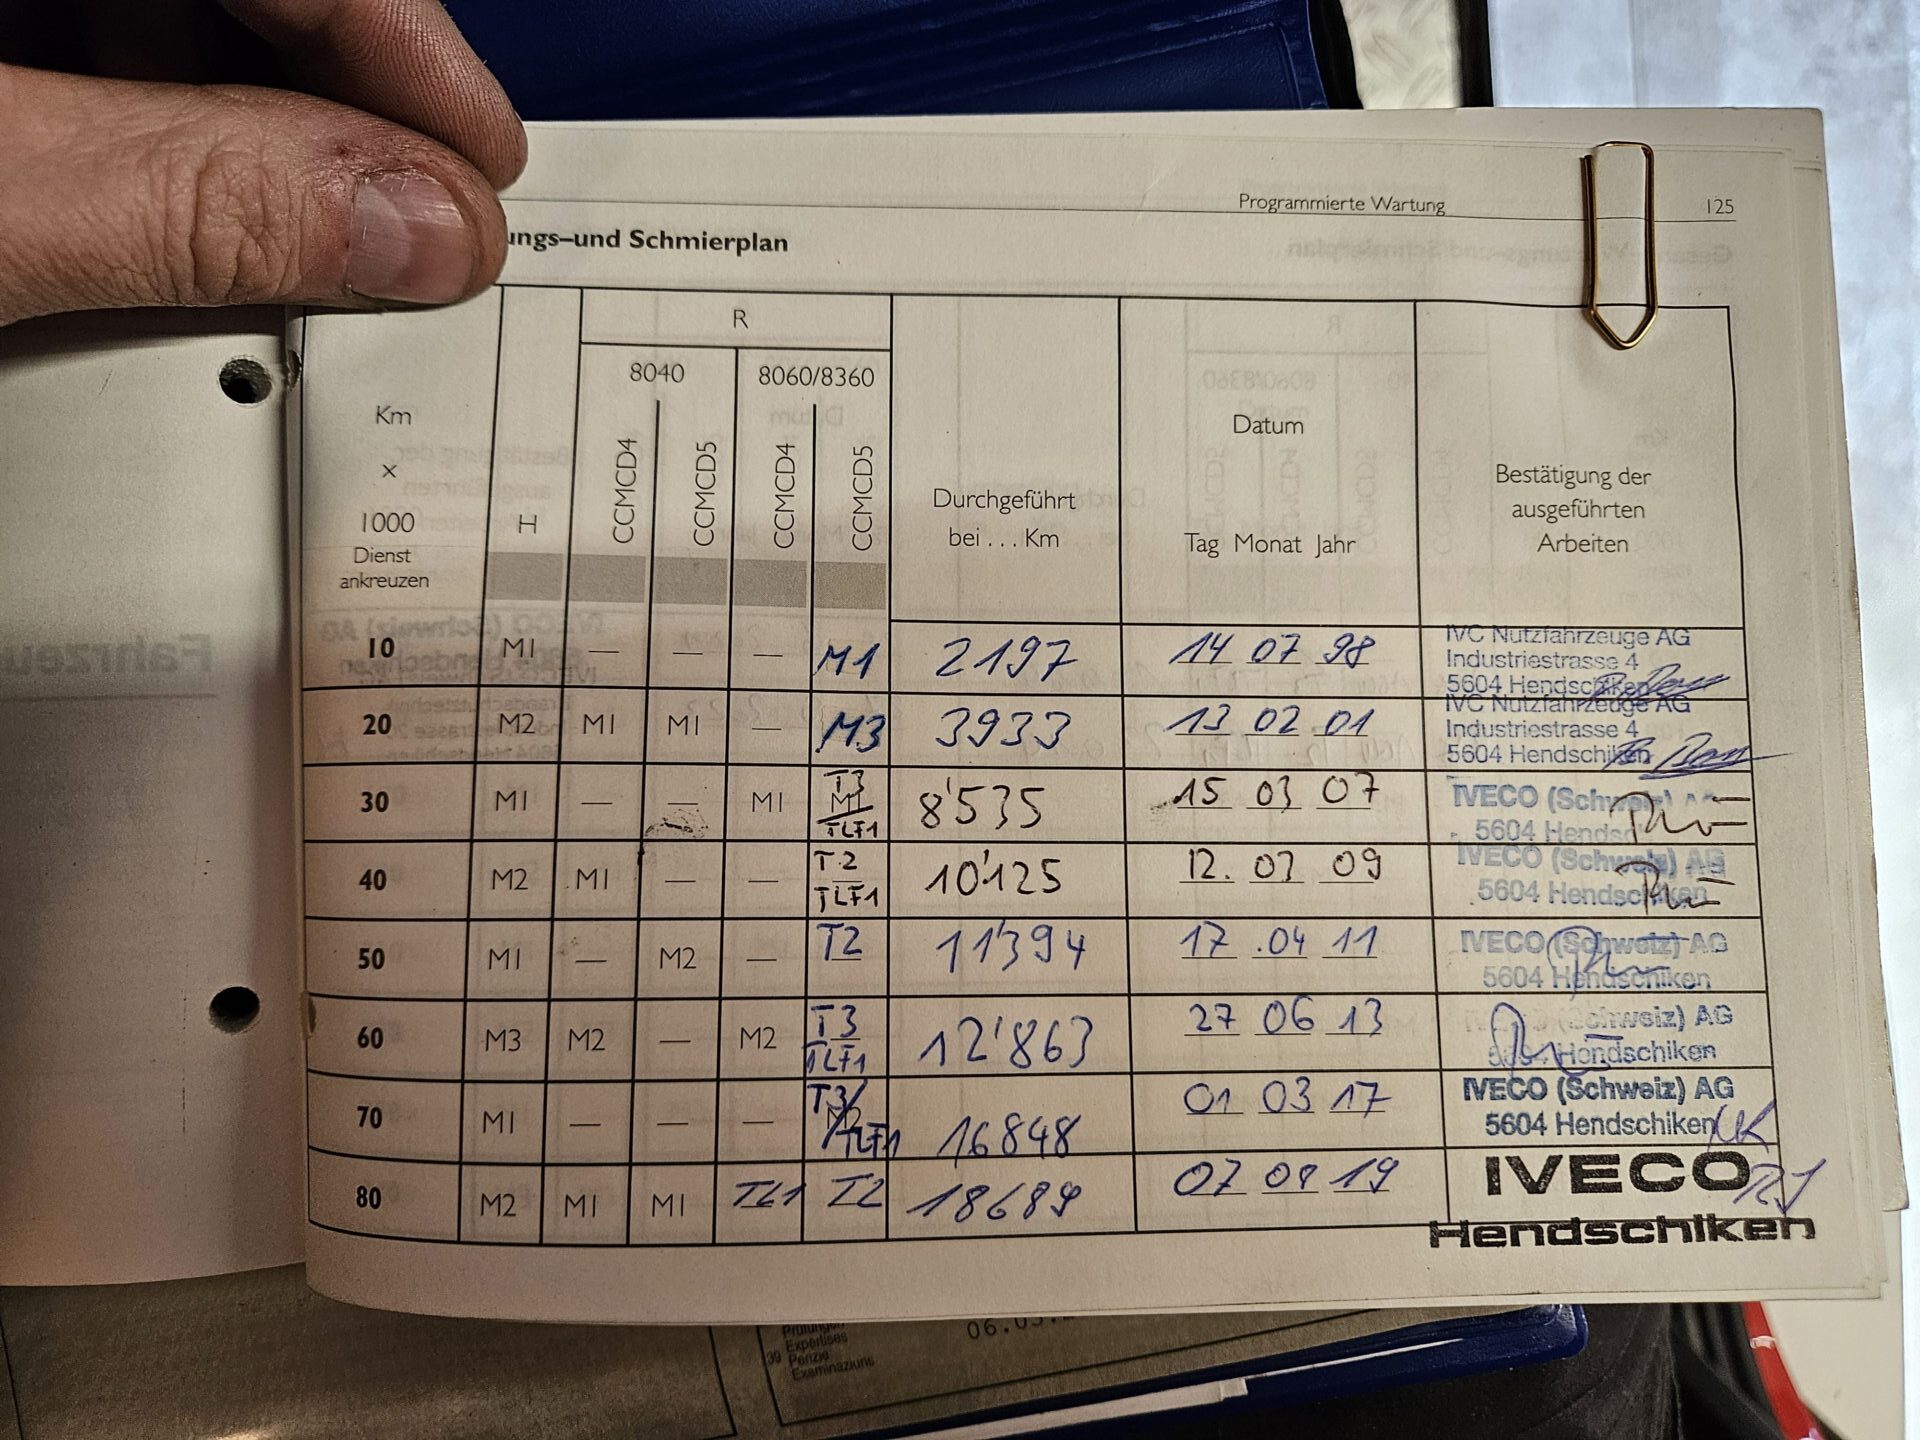 Programmierte Wartung 125
ungs–und Schmierplan
R
8040 8060/8360
Km
x
1000 H CCMCD4 CCMCD5 CCMCD4 CCMCD5
Dienst
ankreuzen
Durchgeführt
bei . . . Km
Datum
Tag Monat Jahr
Bestätigung der
ausgeführten
Arbeiten
10 M1 — — — M1 2197 14 07 98
IVC Nutzfahrzeuge AG
Industriestrasse 4
5604 Hendschiken
20 M2 M1 M1 — M3 3933 13 02 01
IVC Nutzfahrzeuge AG
Industriestrasse 4
5604 Hendschiken
30 M1 — — M1 T3 M1 TLF1 8'535 15 03 07
IVECO (Schweiz)
5604 Hendsc
40 M2 M1 — — T2 TLF1 10'125 12. 03 09
IVECO (Schweiz) AG
5604 Hendschiken
50 M1 — M2 — T2 11'394 17 .04 11
IVECO (Schweiz) AG
5604 Hendschiken
60 M3 M2 — M2 T3 TLF1 12'863 27 06 13
(Schweiz) AG
5604 Hendschiken
70 M1 — — — T3/ M2 TLF1 16848 01 03 17
IVECO (Schweiz) AG
5604 Hendschiken
80 M2 M1 M1 T2 07 19
IVECO
Hendschiken
Fahrzeu
Prüfungen
Expertises
39 Perizie
Examinaziuns
06.0